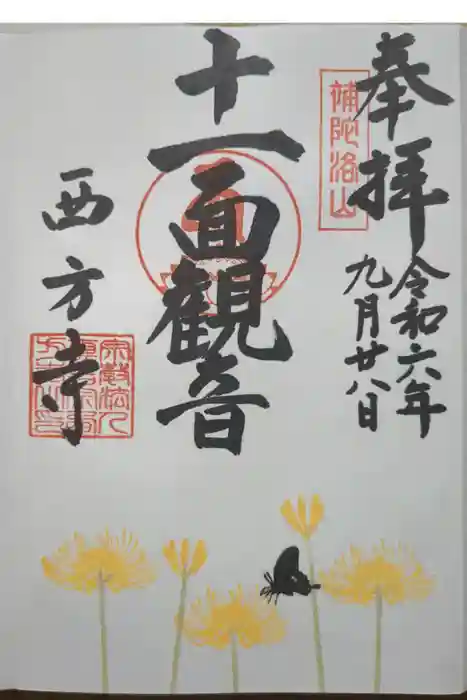 奉拝
令和六年
九月廿八日
補陀洛山
十一面観音
西方寺